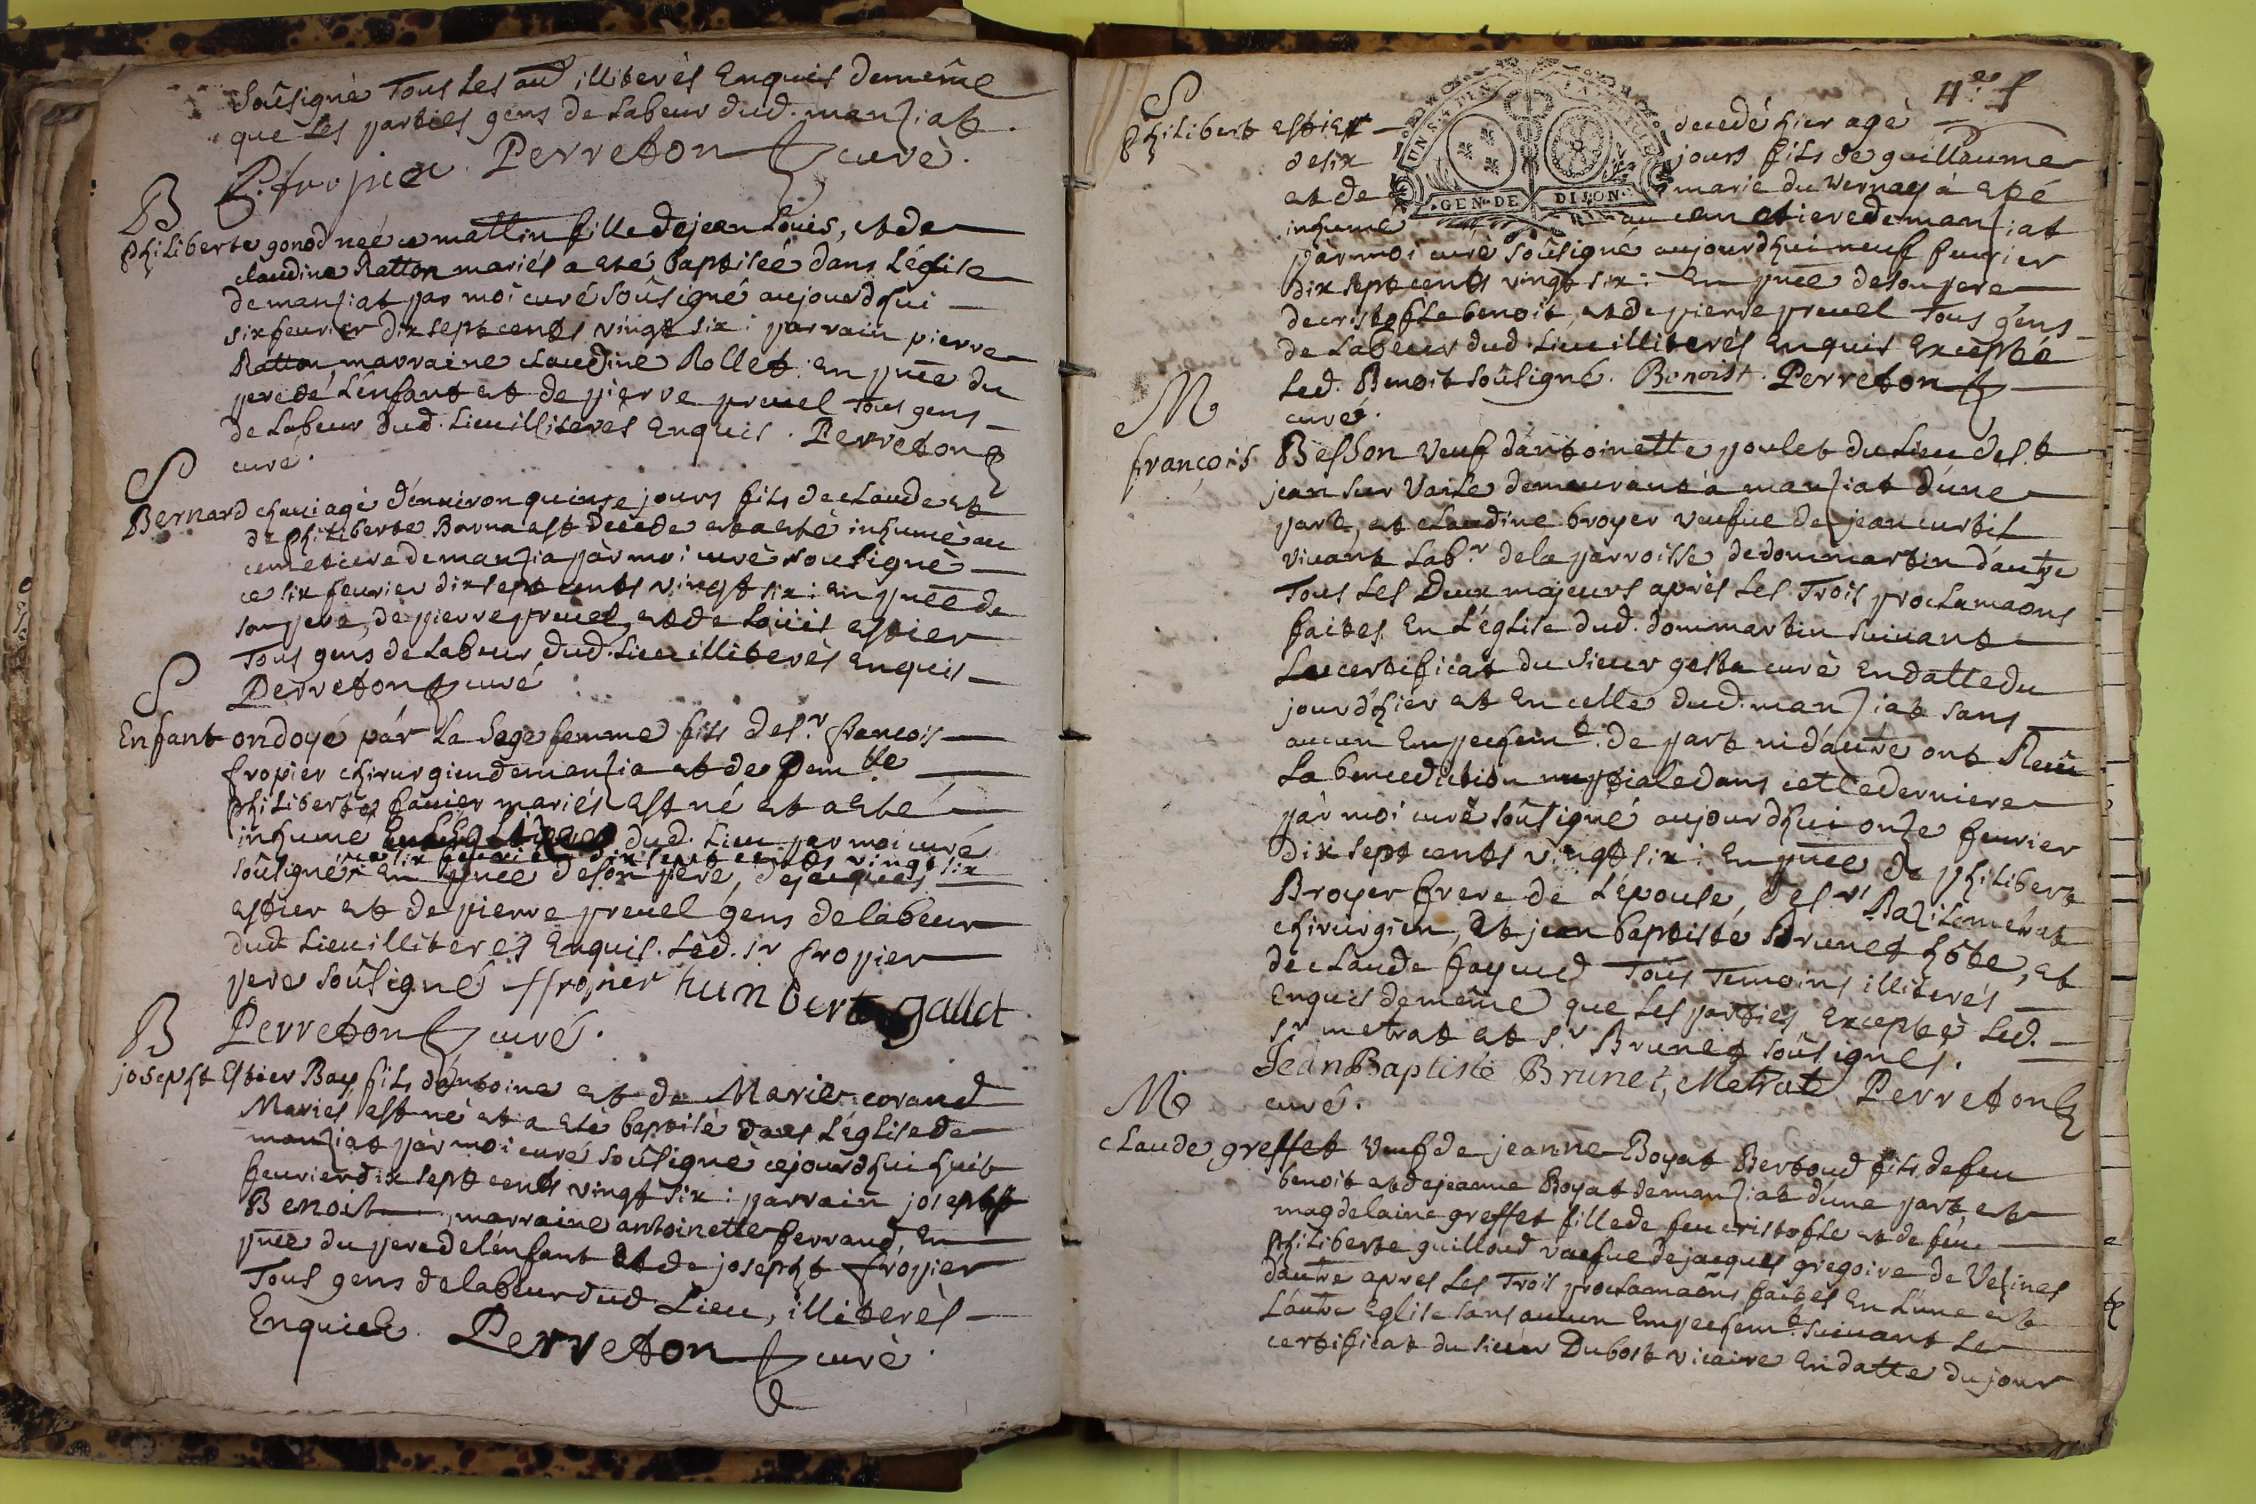 soûsigné Tous Les au͞ illiterés Enquis demême
que Les parties gens de Labeur dud. manziat.
Perreton curé.
B
philiberte gonod neé ce mattin fille de jean Louis, et de
claudine Ratton mariés a eté baptisée dans L'église
de manziat par moi curé soûsigné aujourdhui
six feurier dix sept cents vingt six : parrain pierre
Ratton marraine claudine Rollet. en pñce du
pere dé L'enfant et de pierre preuel tous gens
de Labeur dud. Lieu illiterés Enquis. Perreton
curé.
S
Bernard chaui agé d'enuiron quinse jours fils de claude et
de philiberte Barna est decedé et a eté inhumé au
cemetiere de manzia pàr moi curé soûsigné
ce six feurier dix sept cents vingt six : en pñce de
son pere, de pierre preuel, et de Loüis estier
Tous gens de Labeur dud. Lieu illiterés Enquis
Perreton curé
S
Enfant ondoyé pár La sage femme fils de s.r francois
fropier chirurgien de manzia et de Dem.lle
philiberte fauier mariés est né et a eté
inhumé dud. Lieu par moi curé
ce six feurier dix sept cents vingt six
soûsigné. En pñce de son pere, de jacques
estier et de pierre preuel gens de labeur
dud. Lieu illiterés Enquis. Led. s.r fropier
pere soûsigné ffropier humbert gallet
Perreton curé.
B
josepht Estier Bay fils d'antoine et de Marie corand
Mariés est né et a eté baptisé dans L'église de
manziat pàr moi curé soûsigné cejourdhui huit
feurier dix sept cents vingt six : parrain josepht
Benoit marraine antoinette ferraud, en
pñce du pere de l'enfant et de josepht fropier
Tous gens de labeur dud. Lieu, illiterés
Enquis. Perreton curé.
4.e f
S
philibert estier decedé hier agé
de six jours fils de guillaume
et de marie du Vernay à eté
inhumé au cemetiere de manziat
pàr moi curé soûsigné aujourdhui neuf feurier
dix sept cents vingt six : En pñce de son pere
de cristofle benoit, et de pierre preuel Tous gens
de Labeur dud. Lieu illiterés Enquis Excepté
Led. Benoit soûsigné. Benoist. Perreton
curé.
GEN. DE DIJON
M
françois Besson Veuf d'antoinette poulet du Lieu de s.t
jean sur Vaile demeurant à manziat d'une
part, et claudine broyer veufue de jean curtil
viuant Lab.r de la parroisse de dommartin d'autre
Tous Les Deux majeurs aprés Les Trois proclamaõns
faites En L'église dud. dommartin suiuant
Le certificat du sieur curé En datte du
jourd'hier et En celle dud. manziat sans
aucun Empechem.t de part ni d'autre ont Reçu
La benediction nuptiale dans cette derniere
pàr moi curé soûsigné aujourdhui onze feurier
dix sept cents vingt six : En pñce de philibert
Broyer frere de L'épouse, de s.r Bazile metrat
chirurgien, Et jean baptisté Brunet hôte, et
de claude fayud Tous Temoins illiterés
Enquis demême que Les parties, Excepté Led.
s.r metrat et s.r Brunet soûsignés.
Jean Baptiste Brunet, Metrat Perreton
curé.
M
claude greffet Veuf de jeanne Boyat Bertoud fils de feu
benoit et de jeanne Boyat de manziat d'une part, et
magdelaine greffet fille de feu cristofle et de feüe
philiberte guilloud veufue de jacques gregoire de Vesines
d'autre apres Les Trois proclamaõns faites En L'une et
L'autre Eglise sans aucun Empechem.t suiuant Le
certificat du sieur Dubost vicaire En datte du jour